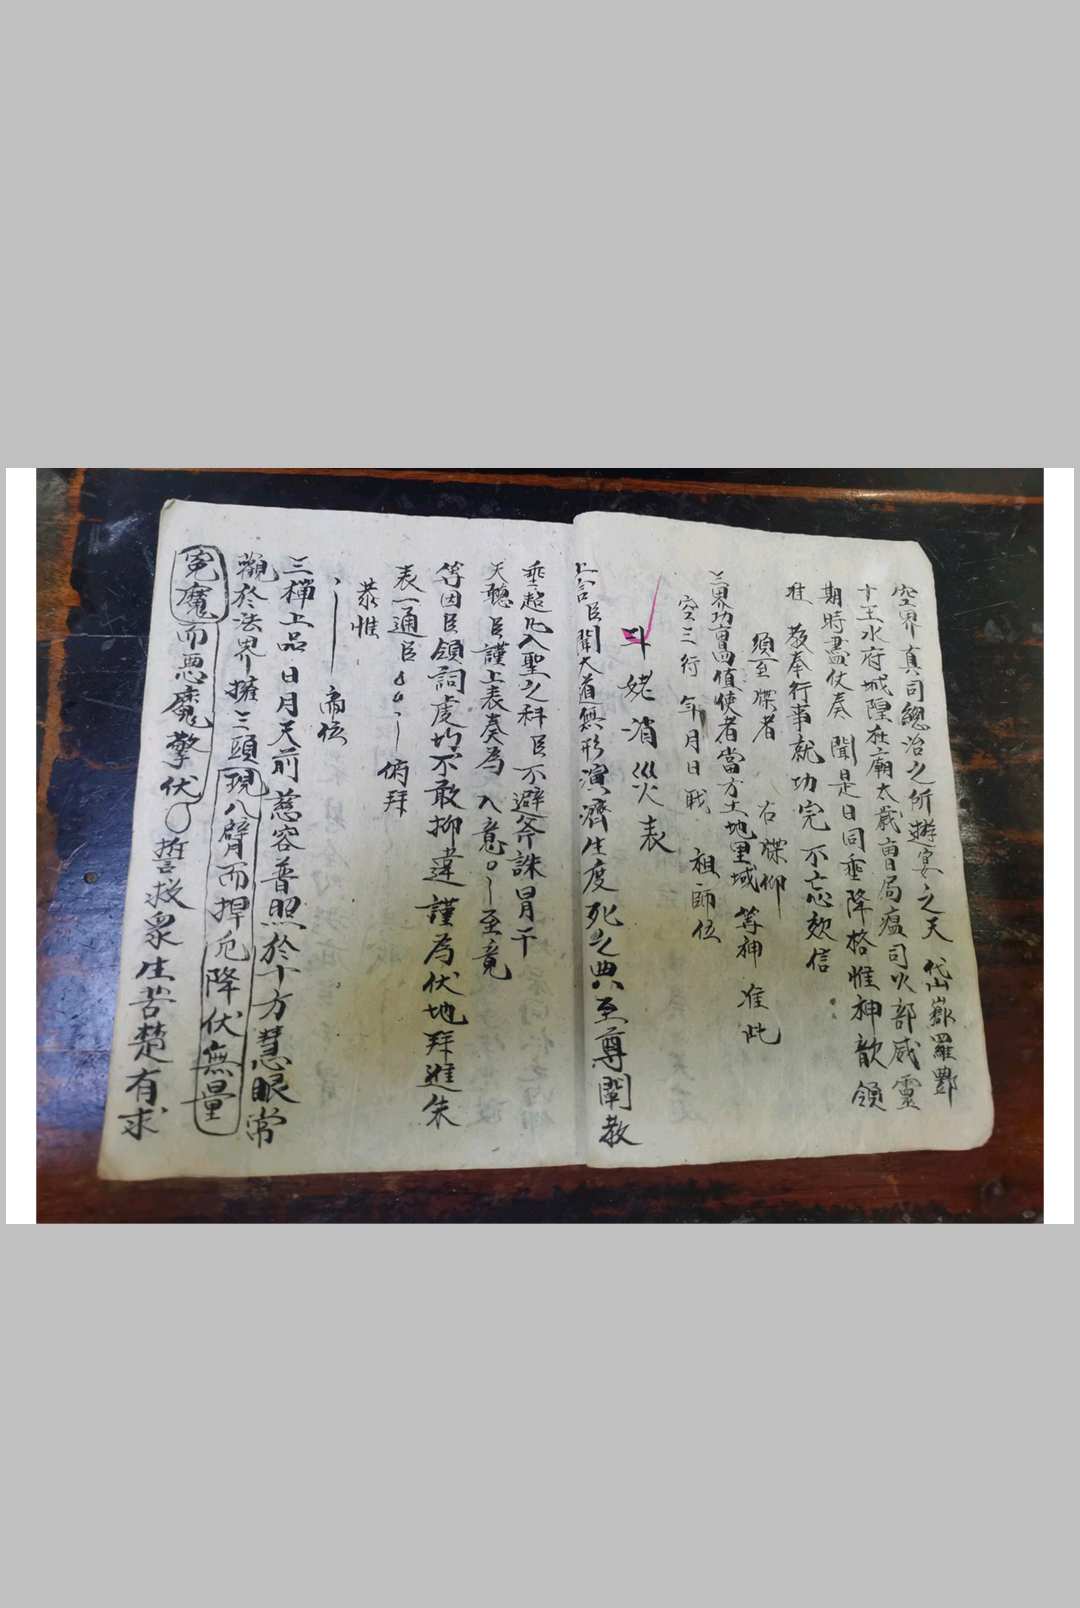 空界真司總治之所遊宴之天 岱嶽羅酆
十王水府城隍在廟太歲曹局瘟司火部威靈
期時盡仗奏 聞是日同垂降格惟神歆領
准 教奉行事就功完不忘欬信
須至牒者 右牒仰
三界功曹值使者當方土地里域等神 准此
空三行 年月日戢 祖師位
斗姥消災表
上言臣聞大道無形演濟生度死之典至尊闡教
垂超凡入聖之科臣不避斧誅冒干
天聽臣謹上表奏為 入意 至竟
等因臣領詞虔切不敢抑違謹為伏地拜進朱
表一通臣 俯拜
恭惟
帝位
三禪上品日月天前慈容普照於十方慧眼常
觀於法界擁三頭現八臂而捍厄降伏無量
冤魔而惡魔擎伏 誓救衆生苦楚有求